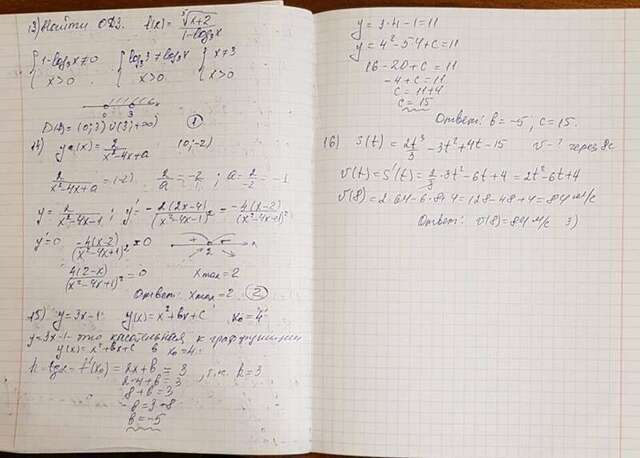 13) Найти ОДЗ. f(x) = ∛(x+2) / (1-log₃x)
{ 1-log₃x ≠ 0 { log₃3 ≠ log₃x { x ≠ 3
x > 0 x > 0 x > 0
0 3 x
D(y) = (0; 3) ∪ (3; +∞) 1
14) y(x) = 2/(x²-4x+a) (0; -2)
2/(x²-4x+a) = (-2) 2/a = -2/1 ; a = 2/-2 = -1
y = 2/(x²-4x-1) ; y' = -2(2x-4)/(x²-4x-1)² = -4(x-2)/(x²-4x-1)²
y' = 0 -4(x-2)/(x²-4x+1)² = 0 + 2 - x
4(2-x)/(x²-4x+1)² = 0 Xmax = 2
Ответ: Xmax = 2 2
15) y = 3x-1 y(x) = x²+bx+c x₀ = 4
y = 3x-1 - это касательная к граф. функции
y(x) = x²+bx+c в x₀ = 4
k = tgα = f'(x₀) = 2x+b = 3 , т.к. k = 3
2·4+b = 3
8+b = 3
b = 3-8
b = -5
y = 3·4-1 = 11
y = 4²-5·4+c = 11
16-20+c = 11
-4+c = 11
c = 11+4
c = 15
Ответ: b = -5, c = 15.
16) S(t) = 2t³/3 - 3t²+4t-15 v-? через 8с
v(t) = S'(t) = 2/3·3t²-6t+4 = 2t²-6t+4
v(8) = 2·64-6·8+4 = 128-48+4 = 84 м/с
Ответ: v(8) = 84 м/с 3)